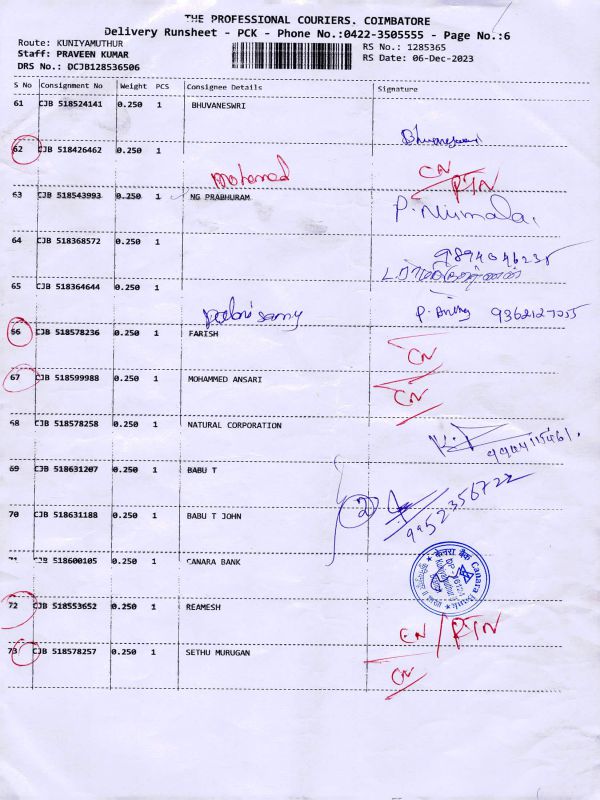 THE PROFESSIONAL COURIERS. COIMBATORE
Delivery Runsheet - PCK - Phone No.:0422-3505555 - Page No.:6
Route: KUNIYAMUTHUR
RS No.: 1285365
Staff: PRAVEEN KUMAR
RS Date: 06-Dec-2023
DRS No.: DCJB128536506
S No Consignment No Weight PCS Consignee Details Signature
61 CJB 518524141 0.250 1 BHUVANESWRI
Bhuvaneswari
62 CJB 518426462 0.250 1
Mohamed CN PTN
63 CJB 518543993 0.250 1 NG PRABHURAM P. Nirmala.
64 CJB 518368572 0.250 1
65 CJB 518364644 0.250 1
9362127055
66 CJB 518578236 0.250 1 FARISH
CN
67 CJB 518599988 0.250 1 MOHAMMED ANSARI
CN
68 CJB 518578258 0.250 1 NATURAL CORPORATION
69 CJB 518631207 0.250 1 BABU T
2 9952356722
70 CJB 518631188 0.250 1 BABU T JOHN
71 CJB 518600105 0.250 1 CANARA BANK
केनरा बैंक Canara Bank
72 CJB 518553652 0.250 1 REAMESH
CN/PTN
73 CJB 518578257 0.250 1 SETHU MURUGAN
CN